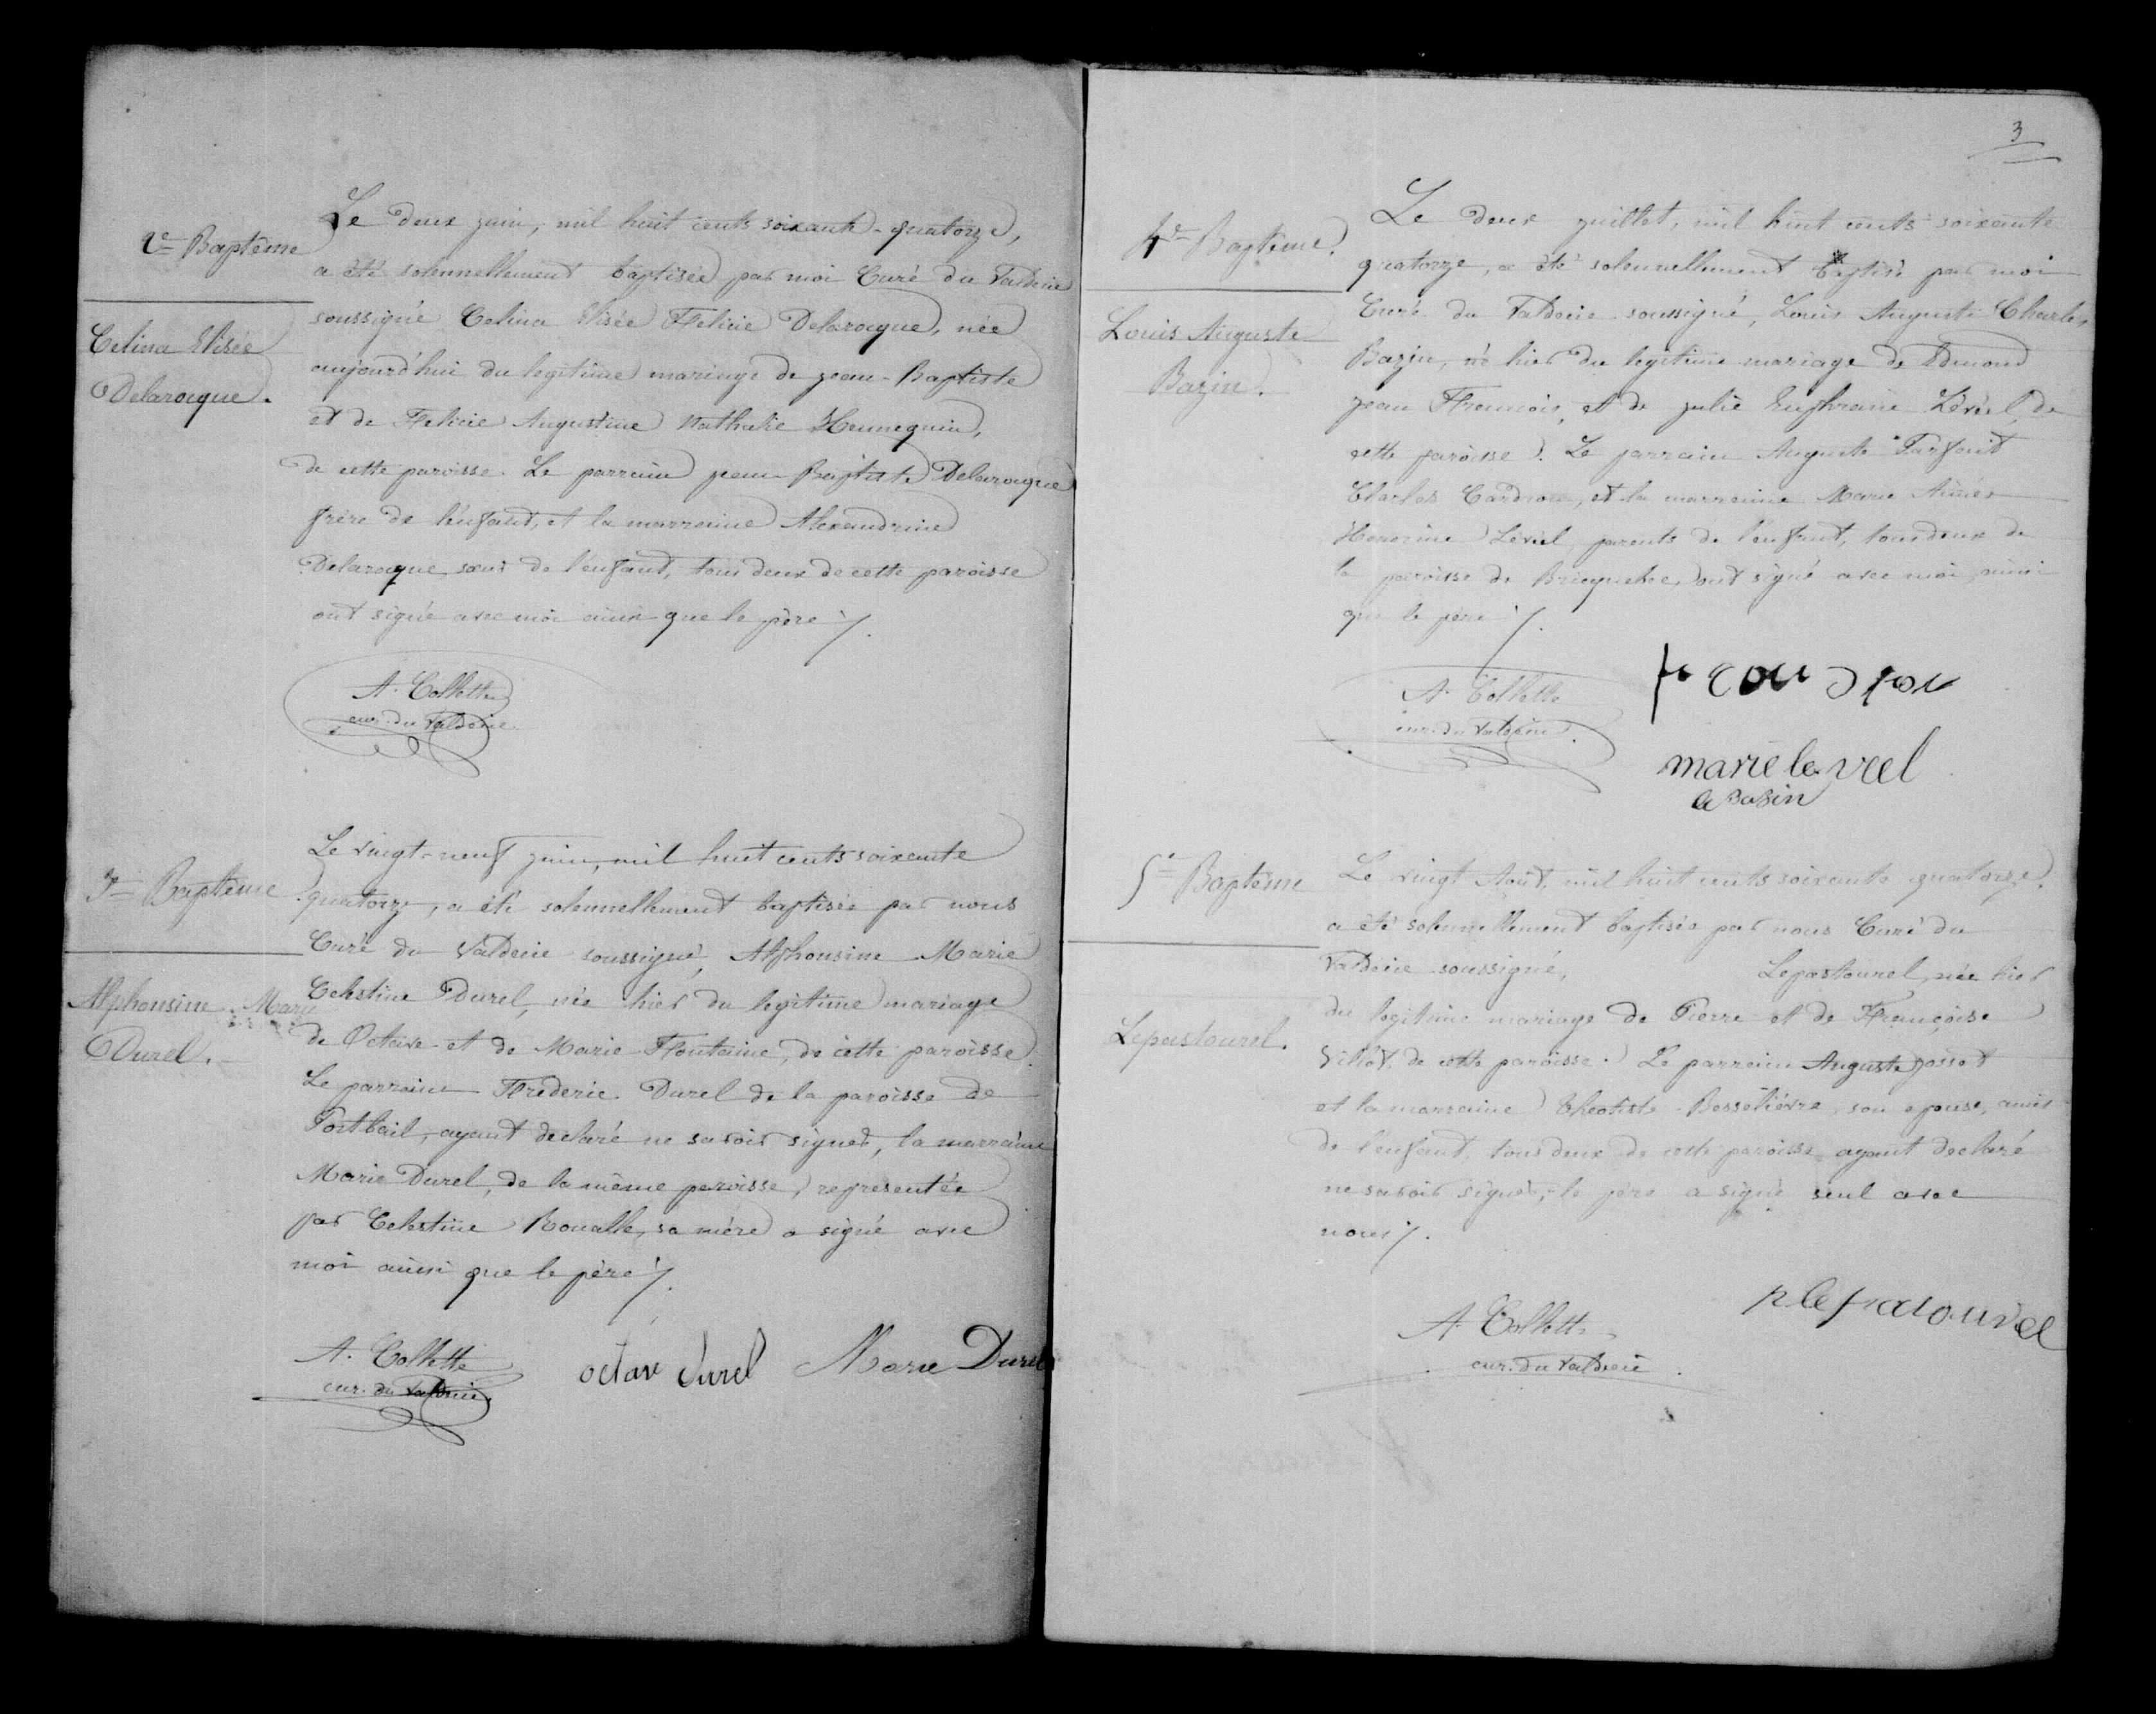 2e Baptême
Celina Elisée
Delarocque.
Le deux juin, mil huit cents soixante-quatorze,
a été solennellement baptisée par moi Curé du Valdécie
soussigné Celina Elisée Felicie Delarocque, née
aujourd'hui du legitime mariage de jean-Baptiste
et de Felicie Augustine Nathalie Hennequin,
de cette paroisse. Le parrain jean-Baptiste Delarocque
frère de l'enfant, et la marraine Alexandrine
Delarocque sœur de l'enfant, tous deux de cette paroisse
ont signé avec moi ainsi que le père /.
A. Collette
cur. du Valdécie
3e Baptême
Alphonsine Marie
Durel.
Le vingt-neuf juin, mil huit cents soixante
quatorze, a été solennellement baptisée par nous
Curé du Valdécie soussigné, Alphonsine Marie
Celestine Durel, née hier du legitime mariage
de Octave et de Marie Fontaine, de cette paroisse.
Le parrain Frederic Durel de la paroisse de
Portbail, ayant declaré ne savoir signer, la marraine
Marie Durel, de la même paroisse, representée
par Celestine Roualle, sa mère a signé avec
moi ainsi que le père /.
A. Collette
cur. du Valdécie
octave durel
Marie Durel
3
4e Baptême.
Louis Auguste
Bazin.
Le deux juillet, mil huit cents soixante
quatorze, a été solennellement baptisé par moi
Curé du Valdécie soussigné, Louis Auguste Charles
Bazin, né hier du legitime mariage de Edmond
jean François, et de julie Euphrasie Lévéel, de
cette paroisse. Le parrain Auguste Parfait
Charles Cardron, et la marraine Marie Aimée
Honorine Lévéel, parents de l'enfant, tous deux de
la paroisse de Bricquebec, ont signé avec moi ainsi
que le père /.
A. Collette
cur. du Valdécie.
marie le veel
e Basin
5e Baptême
Lepastourel.
Le vingt Août, mil huit cents soixante quatorze,
a été solennellement baptisée par nous Curé du
Valdécie soussigné, Lepastourel, née hier
du legitime mariage de Pierre et de Françoise
Villot, de cette paroisse. Le parrain Auguste josset
et la marraine Theotiste Bosselièvre, son epouse, amis
de l'enfant, tous deux de cette paroisse ayant declaré
ne savoir signer, le père a signé seul avec
nous /.
A. Collette
cur. du Valdécie.
p lepastourel